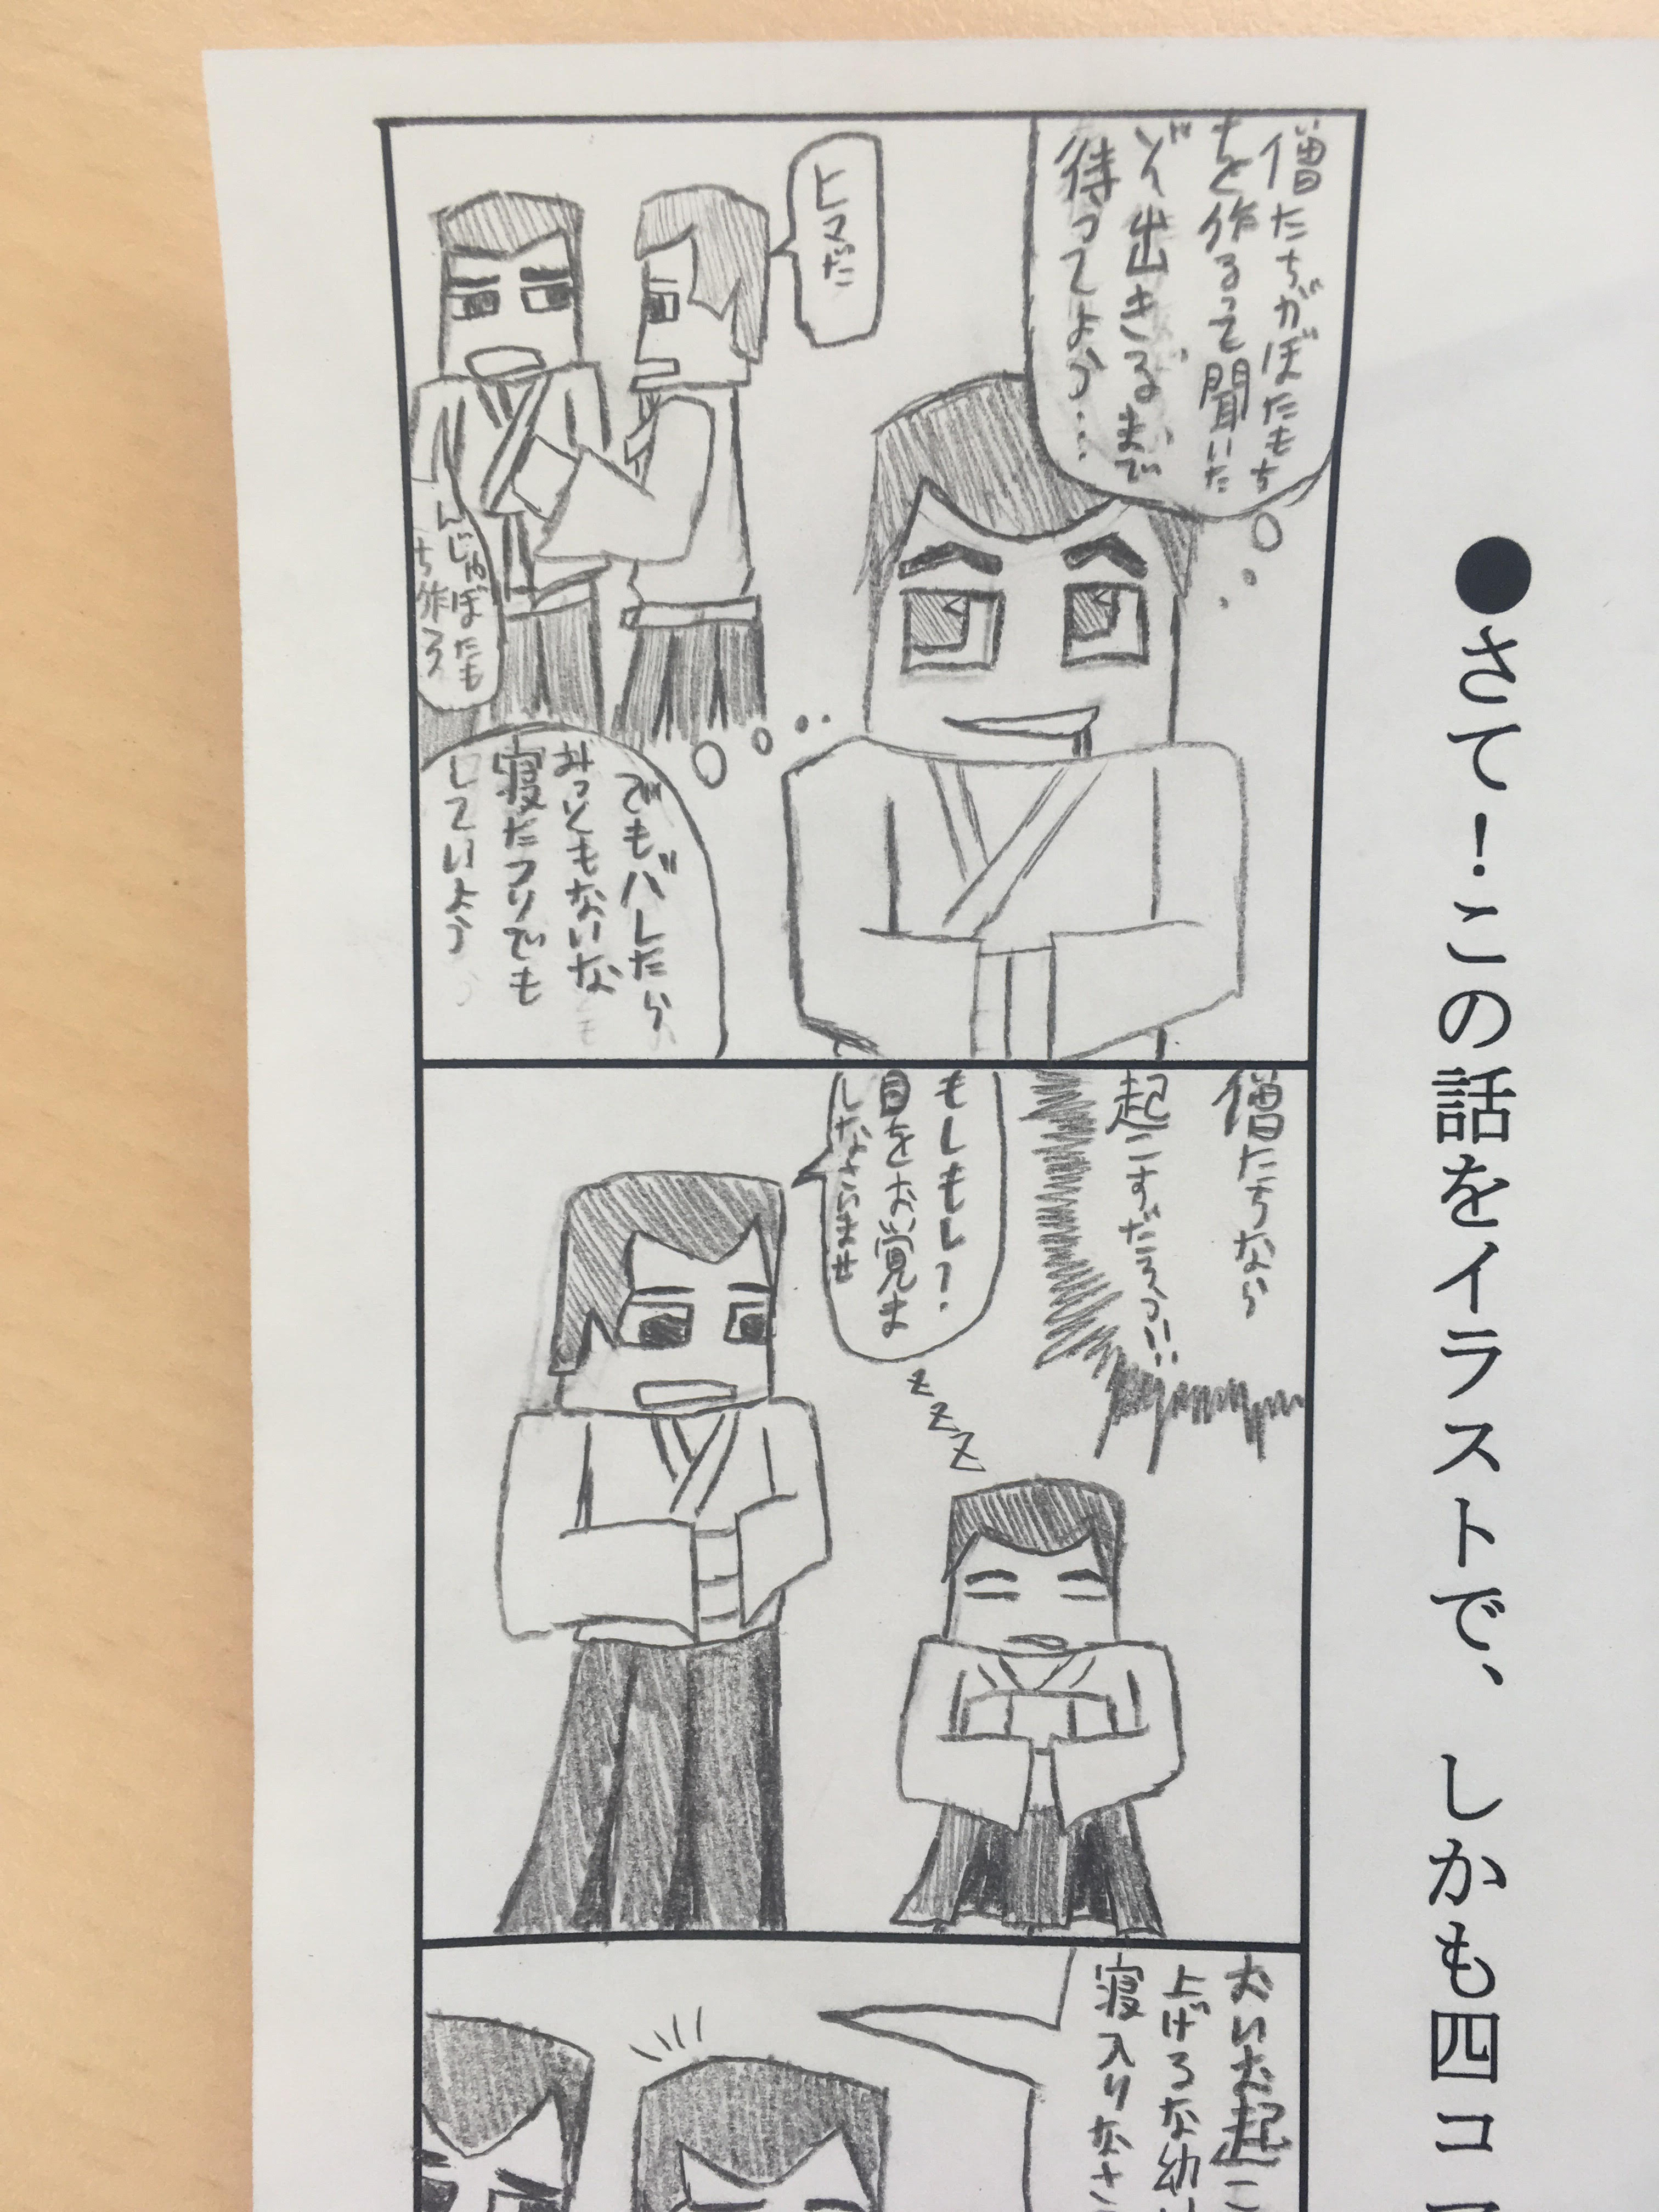 ●さて！この話をイラストで、しかも四コ
僧たちがぼたもち
を作るって聞いた
ぞ出きるまで
待ってよう…
ヒマだ
んじゃぼたも
ち作ろう
でもバレたら
みっともないな
寝たフリでも
していよう
僧たちなら
起こすだろう!!
もしもし?
目をお覚ま
しなさいませ
zzz
おいお起こ
上げるな幼
寝入りなさ